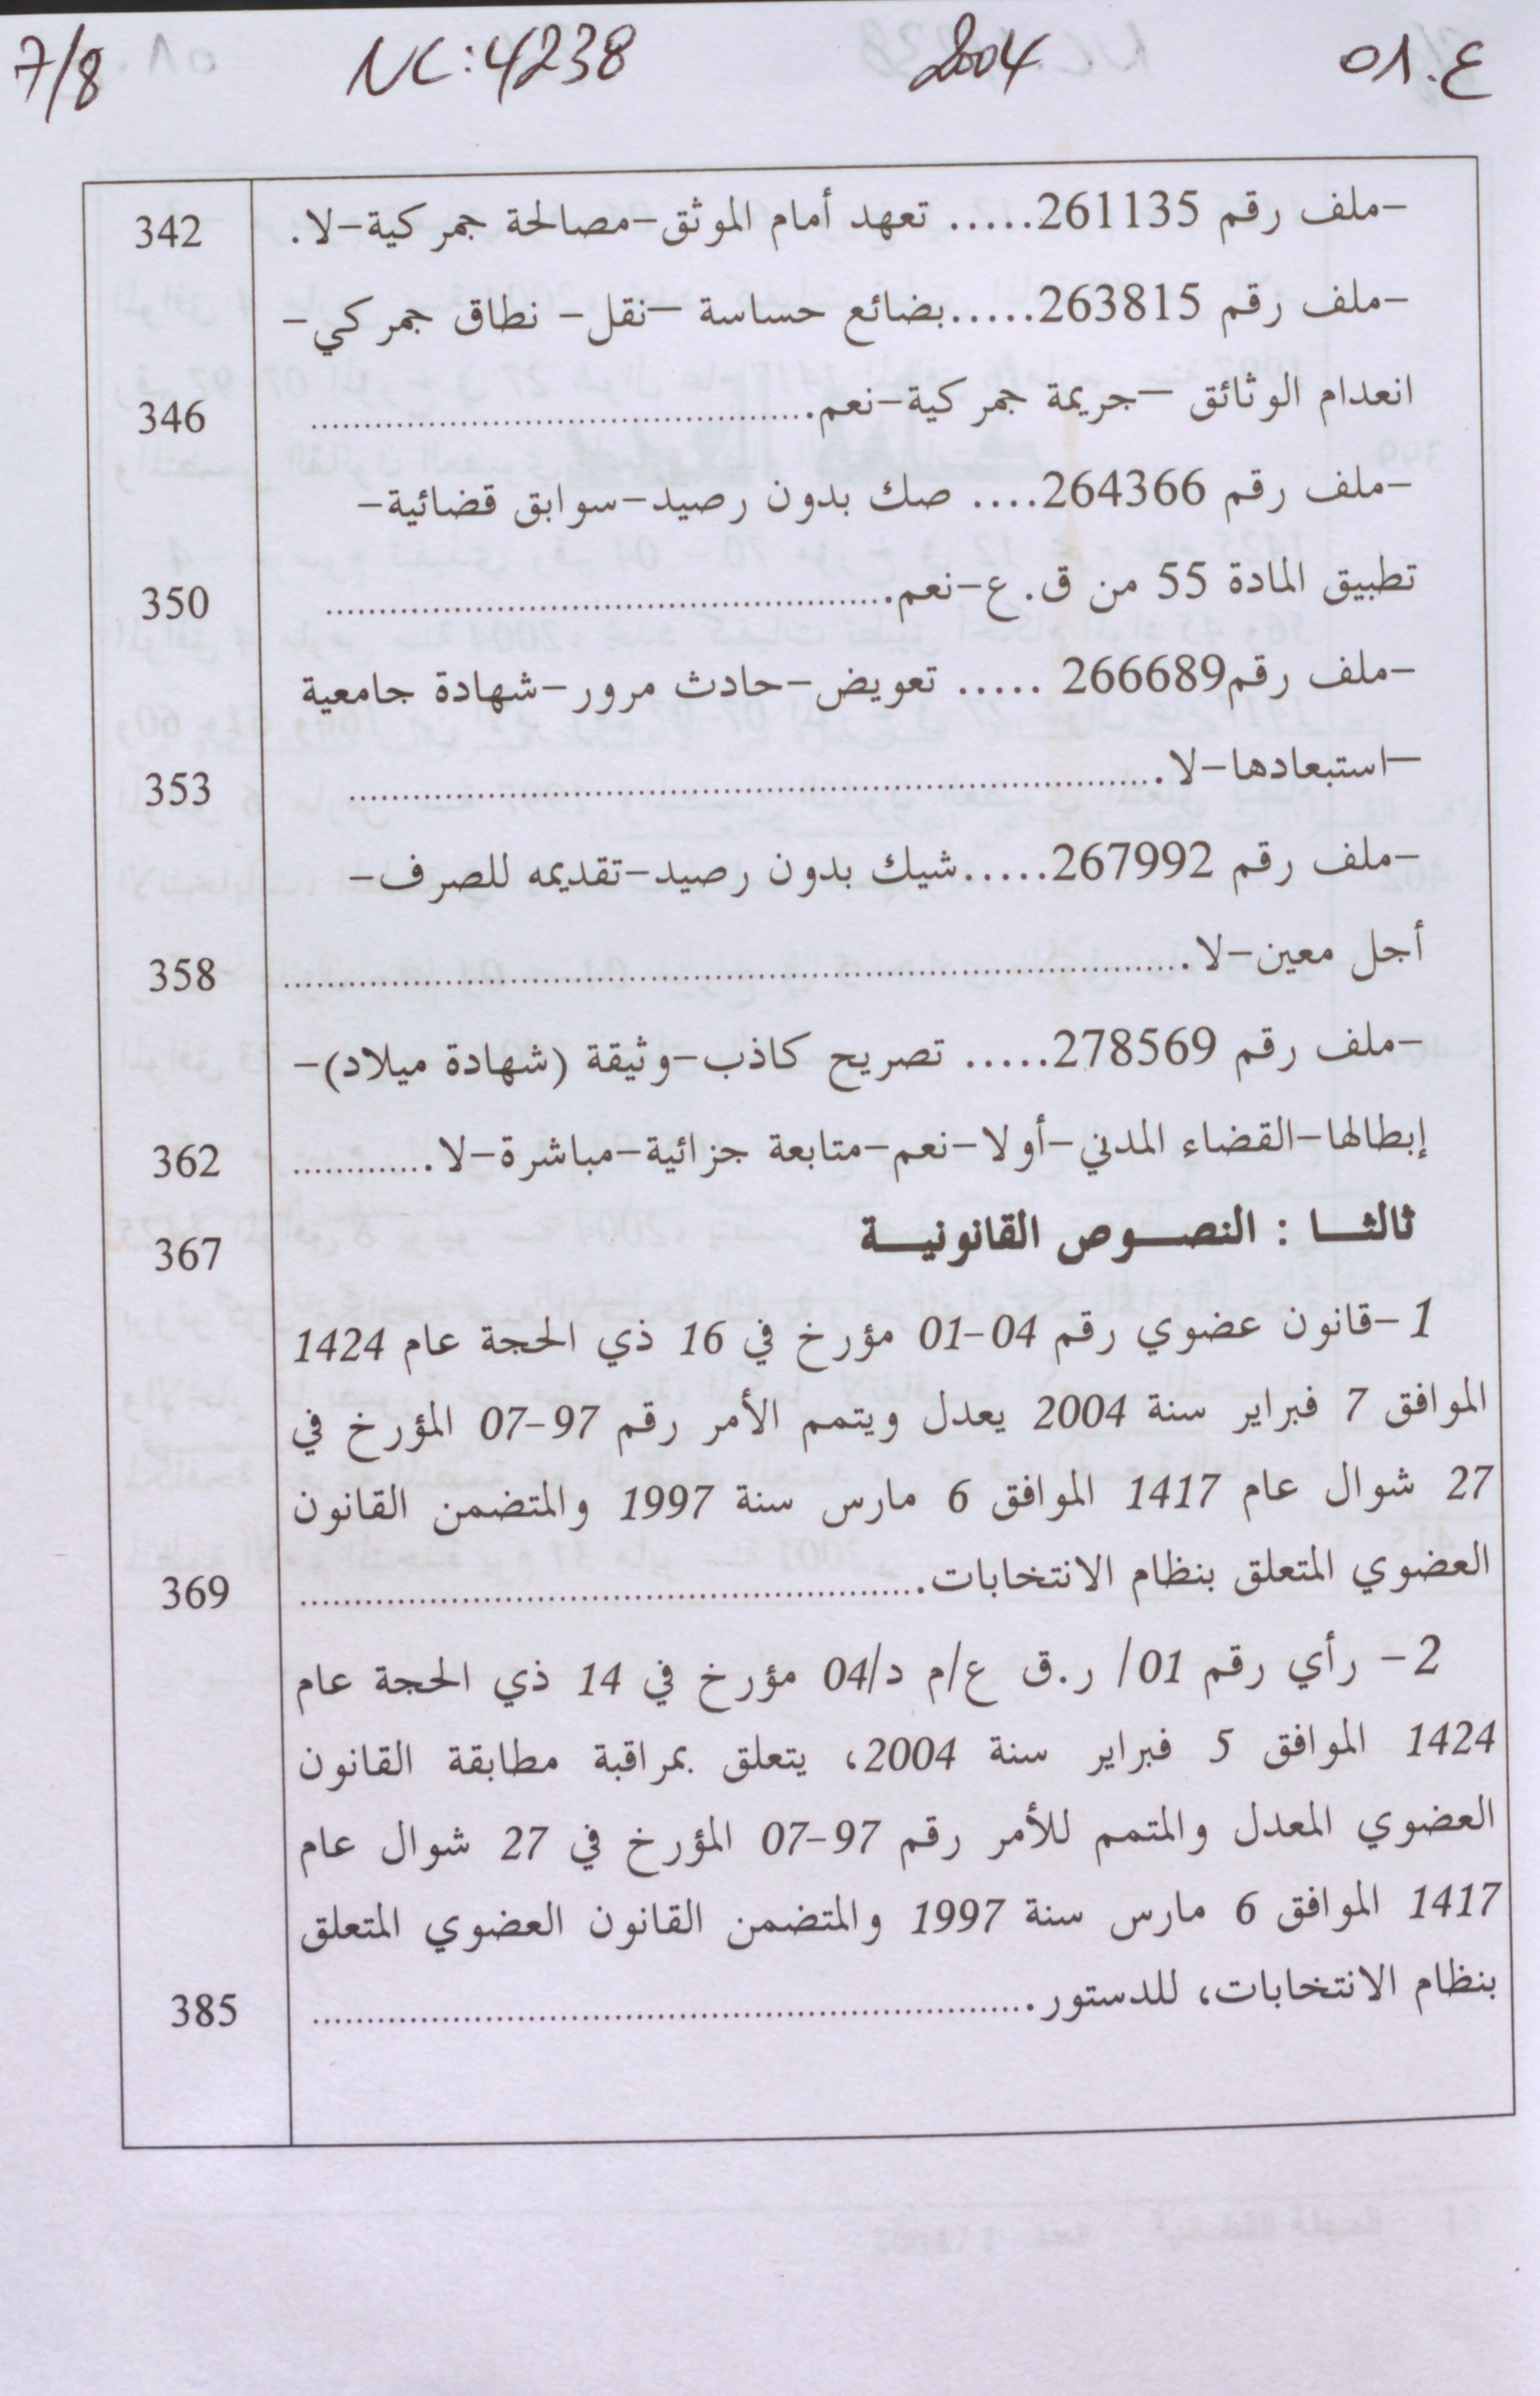 ع.01 2004 NC:4238 7/8
-ملف رقم 261135..... تعهد أمام الموثق-مصالحة جمركية-لا. 342
-ملف رقم 263815.....بضائع حساسة -نقل- نطاق جمركي-
انعدام الوثائق -جريمة جمركية-نعم. 346
-ملف رقم 264366.... صك بدون رصيد-سوابق قضائية-
تطبيق المادة 55 من ق.ع-نعم. 350
-ملف رقم266689 ..... تعويض-حادث مرور-شهادة جامعية
-استبعادها-لا. 353
-ملف رقم 267992.....شيك بدون رصيد-تقديمه للصرف-
أجل معين-لا. 358
-ملف رقم 278569..... تصريح كاذب-وثيقة (شهادة ميلاد)-
إبطالها-القضاء المدني-أولا-نعم-متابعة جزائية-مباشرة-لا. 362
ثالثـــا : النصـــوص القانونيـــة 367
1-قانون عضوي رقم 04-01 مؤرخ في 16 ذي الحجة عام 1424
الموافق 7 فبراير سنة 2004 يعدل ويتمم الأمر رقم 97-07 المؤرخ في
27 شوال عام 1417 الموافق 6 مارس سنة 1997 والمتضمن القانون
العضوي المتعلق بنظام الانتخابات. 369
2- رأي رقم 01/ ر.ق ع/م د/04 مؤرخ في 14 ذي الحجة عام
1424 الموافق 5 فبراير سنة 2004، يتعلق بمراقبة مطابقة القانون
العضوي المعدل والمتمم للأمر رقم 97-07 المؤرخ في 27 شوال عام
1417 الموافق 6 مارس سنة 1997 والمتضمن القانون العضوي المتعلق
بنظام الانتخابات، للدستور. 385